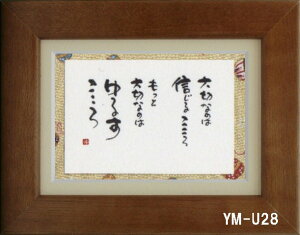 大切なのは
信じるこころ
もっと
大切なのは
ゆるす
こころ
YM-U28